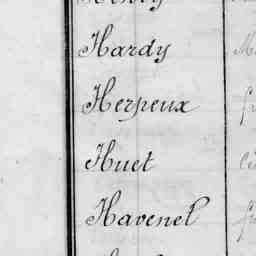 Hardy
Herpeux
Huet
Havenel